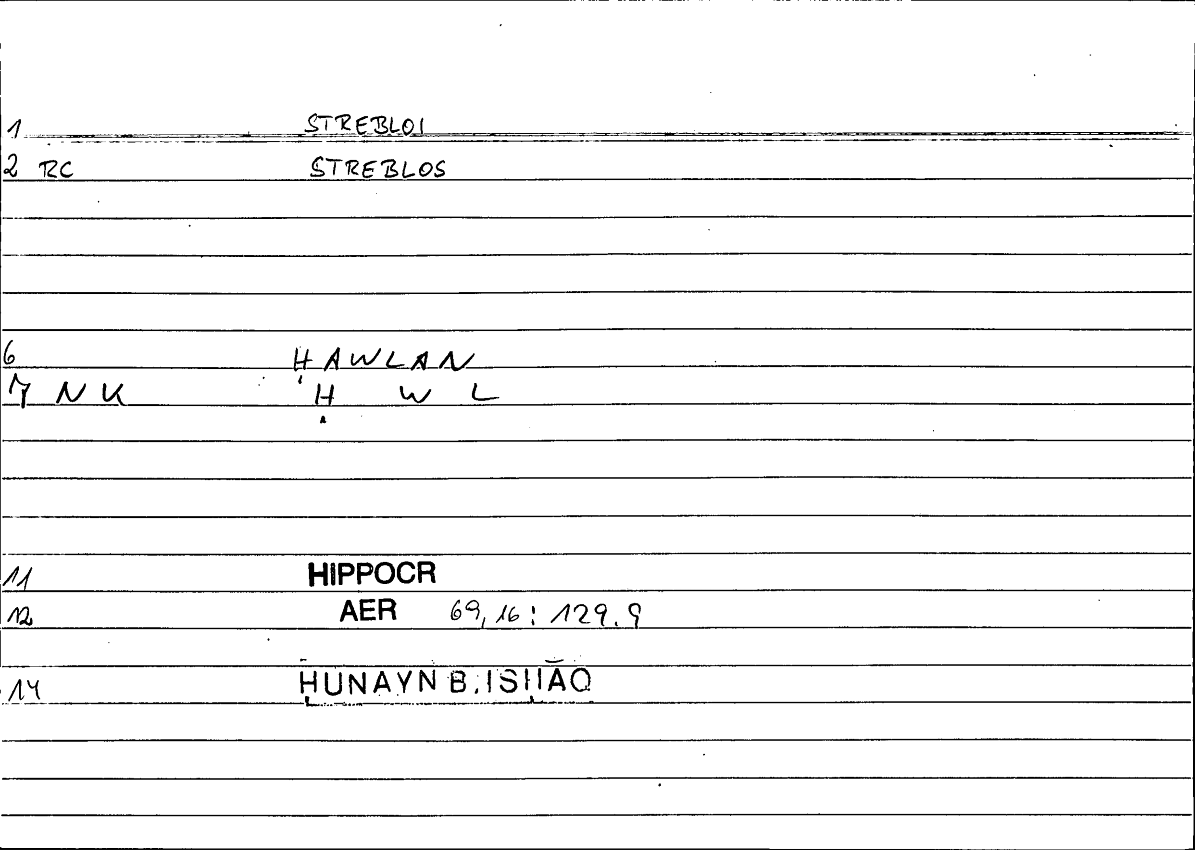 1 STREBLOI
2 RC STREBLOS
6 ḤAWLĀN
7 NK Ḥ W L
11 HIPPOCR
12 AER 69,16: 129.9
14 ḤUNAYN B. ISḤĀQ